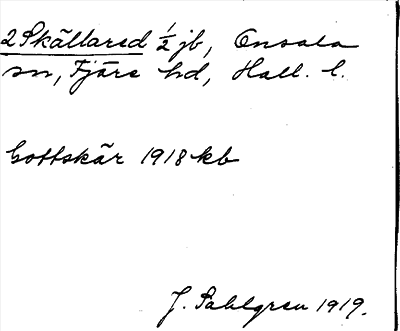 2 Skällared ½ jb, Onsala
sn, Fjäre hd, Hall. l.
Gottskär 1918 kb
J. Sahlgren 1919.